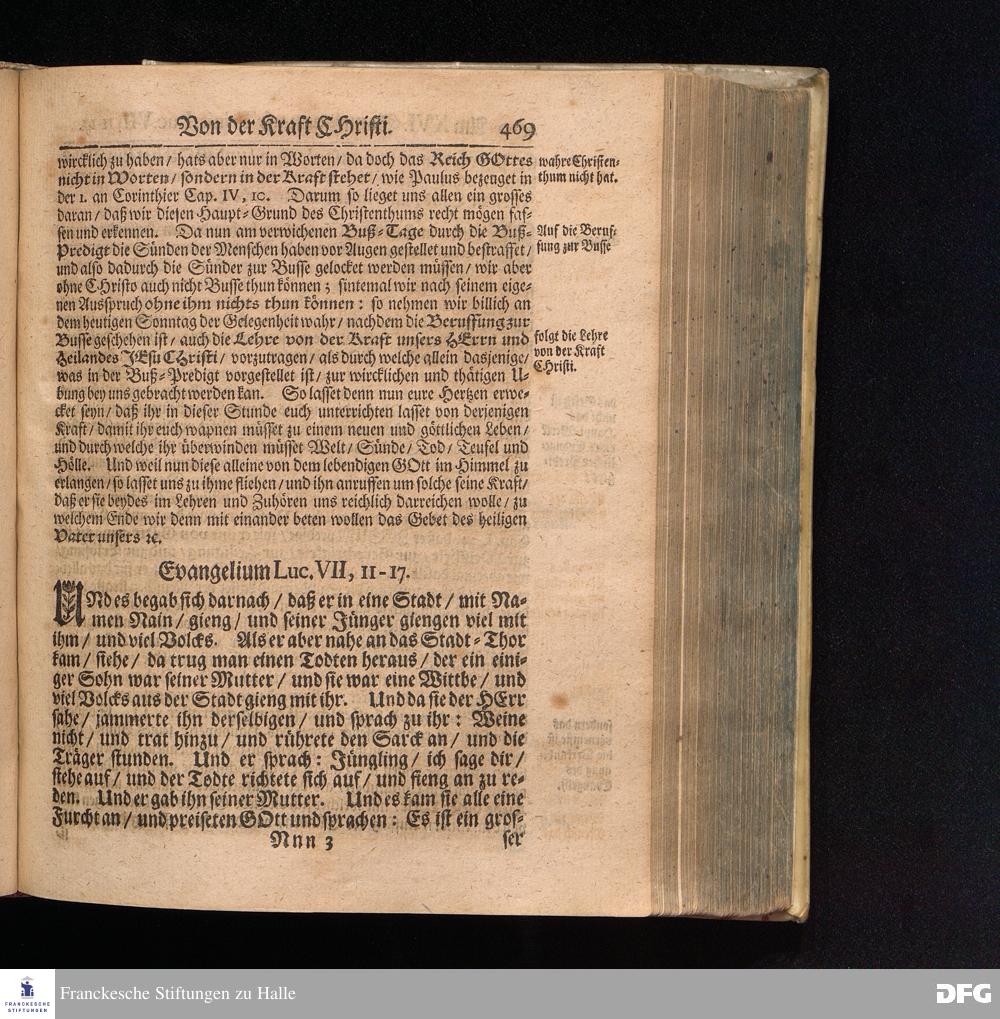 Von der Krafft CHristi. 469
wircklich zu haben / hats aber nur in Worten / da doch das Reich GOttes
nicht in Worten / sondern in der Kraft stehet / wie Paulus bezeuget in
der 1. an Corinthier Cap. IV, 10. Darum so lieget uns allen ein grosses
daran / daß wir diesen Haupt-Grund des Christenthums recht mögen fas-
sen und erkennen. Da nun am verwichenen Buß-Tage durch die Buß-
Predigt die Sünden der Menschen haben vor Augen gestellet und bestraffet /
und also dadurch die Sünder zur Busse gelocket werden müssen / wir aber
ohne CHristo auch nicht Busse thun können; sintemal wir nach seinem eige-
nen Ausspruch ohne ihm nichts thun können: so nehmen wir billich an
dem heutigen Sonntag der Gelegenheit wahr / nachdem die Beruffung zur
Busse geschehen ist / auch die Lehre von der Kraft unsers HErrn und
Heilandes JEsu CHristi / vorzutragen / als durch welche allein dasjenige /
was in der Buß-Predigt vorgestellet ist / zur wircklichen und thätigen U-
bung bey uns gebracht werden kan. So lasset denn nun eure Hertzen erwe-
cket seyn / daß ihr in dieser Stunde euch unterrichten lasset von derjenigen
Kraft / damit ihr euch wapnen müsset zu einem neuen und göttlichen Leben /
und durch welche ihr überwinden müsset Welt / Sünde / Tod / Teufel und
Hölle. Und weil nun diese alleine von dem lebendigen GOtt im Himmel zu
erlangen / so lasset uns zu ihme fliehen / und ihn anruffen um solche seine Kraft /
daß er sie beydes im Lehren und Zuhören uns reichlich darreichen wolle / zu
welchem Ende wir denn mit einander beten wollen das Gebet des heiligen
Vater unsers ꝛc.
wahre Christen-
thum nicht hat.
Auf die Beruf-
fung zur Busse
folgt die Lehre
von der Kraft
CHristi.
Evangelium Luc. VII, 11-17.
UNd es begab sich darnach / daß er in eine Stadt / mit Na-
men Nain / gieng / und seiner Jünger giengen viel mit
ihm / und viel Volcks. Als er aber nahe an das Stadt-Thor
kam / siehe / da trug man einen Todten heraus / der ein eini-
ger Sohn war seiner Mutter / und sie war eine Wittbe / und
viel Volcks aus der Stadt gieng mit ihr. Und da sie der HErr
sahe / jammerte ihn derselbigen / und sprach zu ihr: Weine
nicht / und trat hinzu / und rührete den Sarck an / und die
Träger stunden. Und er sprach: Jüngling / ich sage dir /
stehe auf / und der Todte richtete sich auf / und fieng an zu re-
den. Und er gab ihn seiner Mutter. Und es kam sie alle eine
Furcht an / und preiseten GOtt und sprachen: Es ist ein gros-
Nnn 3 ser
FRANCKESCHE
STIFTUNGEN
Franckesche Stiftungen zu Halle
DFG